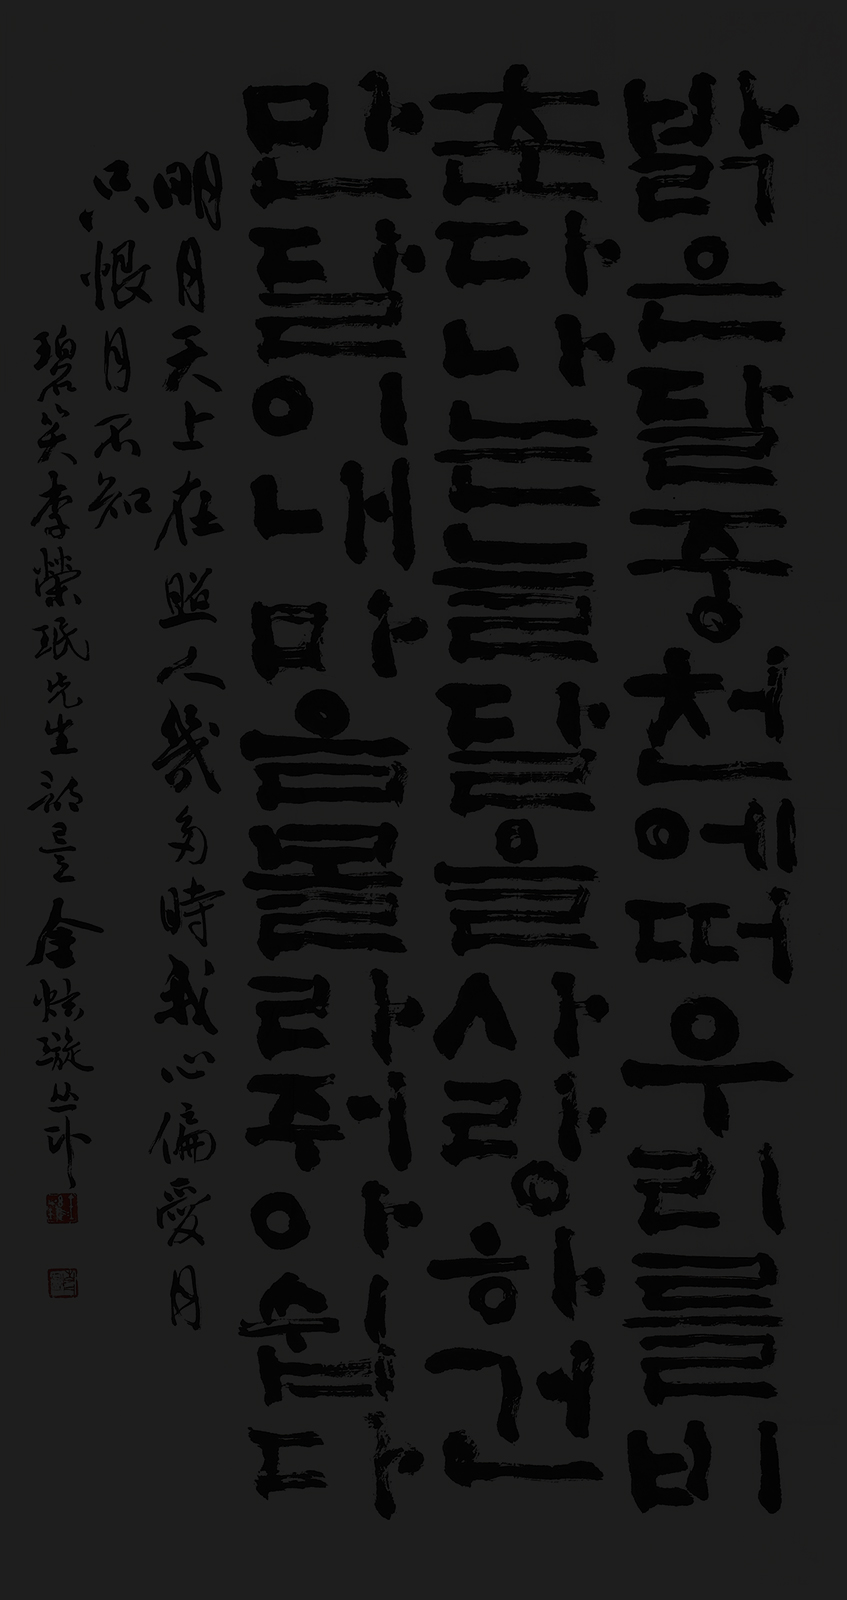 밝은달중천에떠우리를비
춘다나는늘달을사랑하건
만달이내마음몰라줘아쉽다
明月天上在照人幾多時我心偏愛月
只恨月不知
碧笑李榮珉先生 金炫璇쓰다